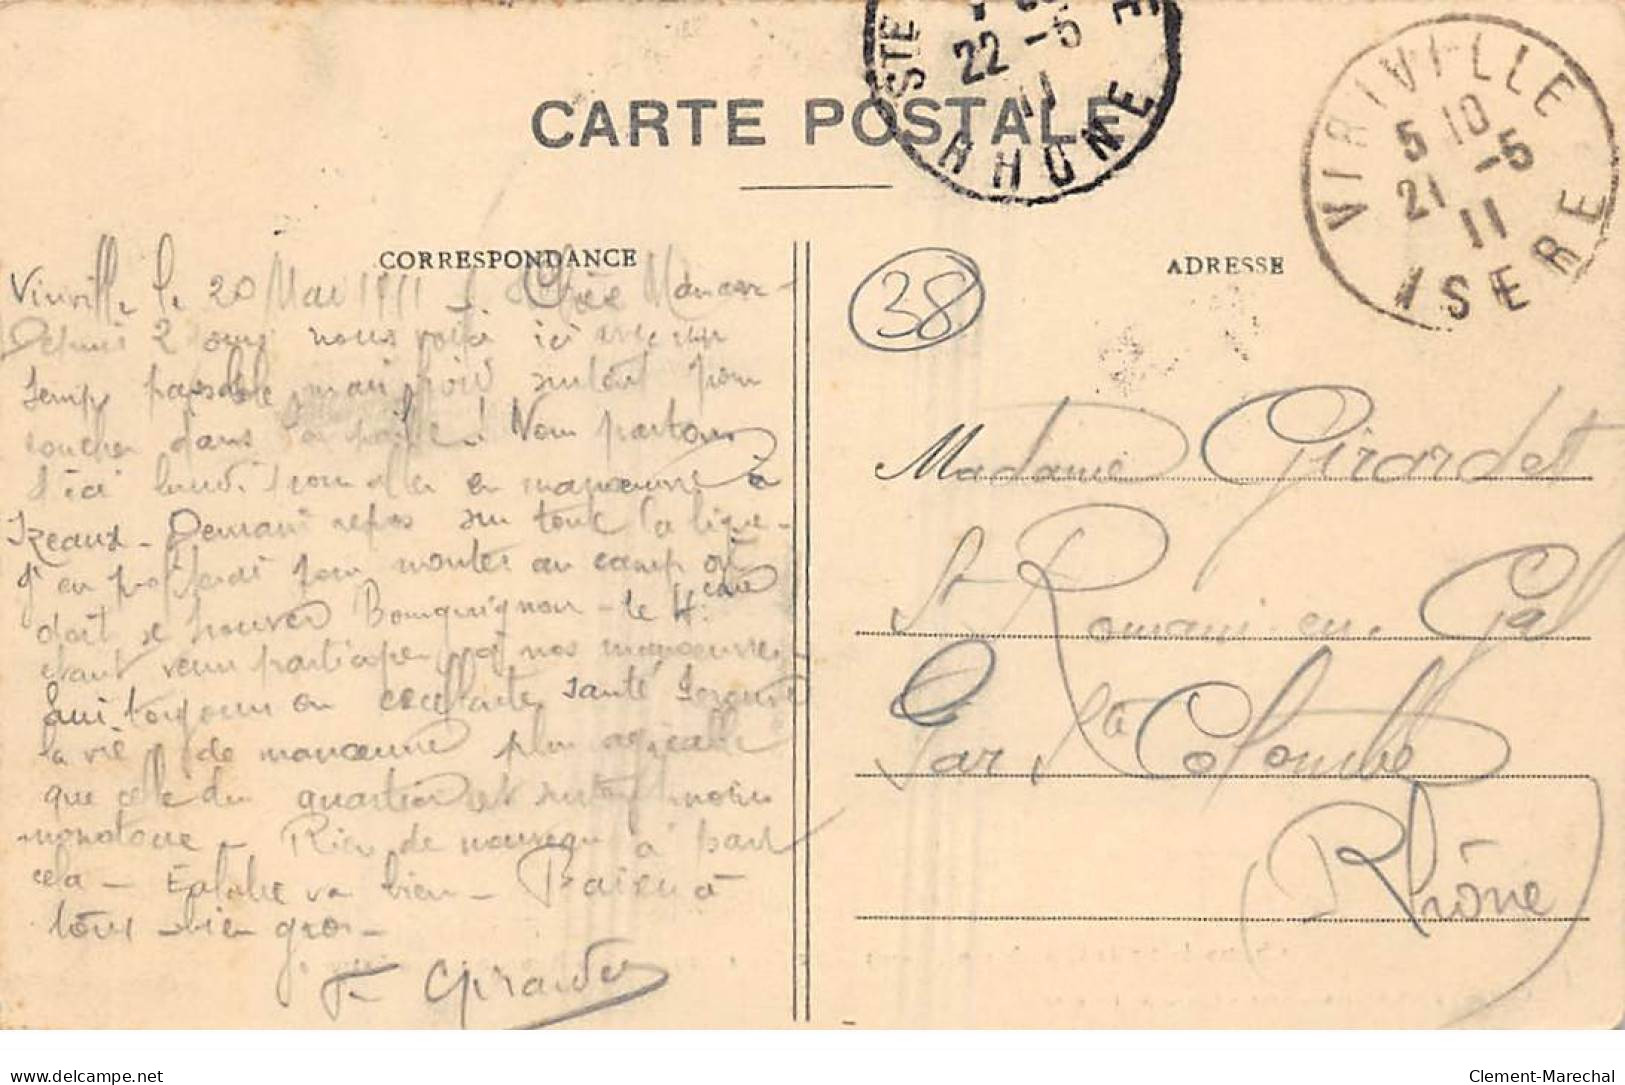 STE
22 -5
11
RHONE
VIRIVILLE
5 10
21 -5
11
ISERE
CARTE POSTALE
CORRESPONDANCE
ADRESSE
38
Viriville le 20 Mai 1911 - Chère Maman -
Depuis 2 jours nous voilà ici avec un
temps passable mais froid surtout pour
coucher dans la paille! Nous partons
d'ici lundi pour aller en manoeuvre à
Izeaux - Demain repos sur toute la ligne -
J'en profiterai pour monter au camp où
doit se trouver Bourguignon - le 4e
étant venu participer à nos manoeuvres -
Suis toujours en excellente santé
la vie de manoeuvre plus agréable
que celle du quartier et surtout moins
monotone - Rien de nouveau à part
cela - va bien - à
tous - bien gros -
Girardet
Madame Girardet
St Romain-en-Gal
Par Ste Colombe
(Rhône)
Clement-Marechal
delcampe.net